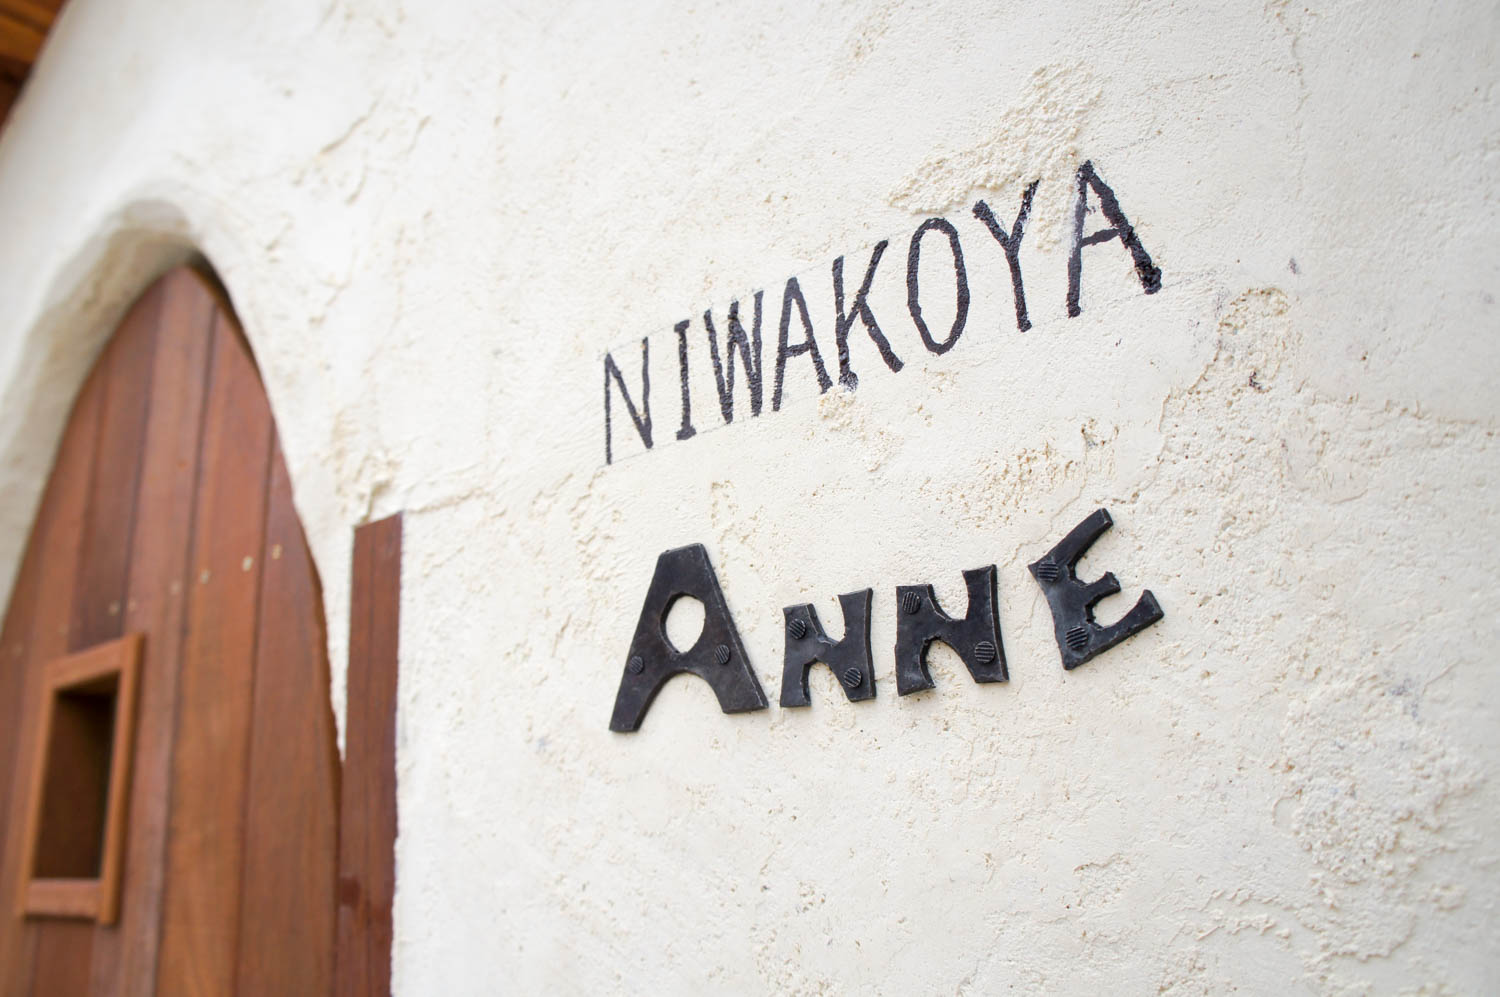 NIWAKOYA
ANNE